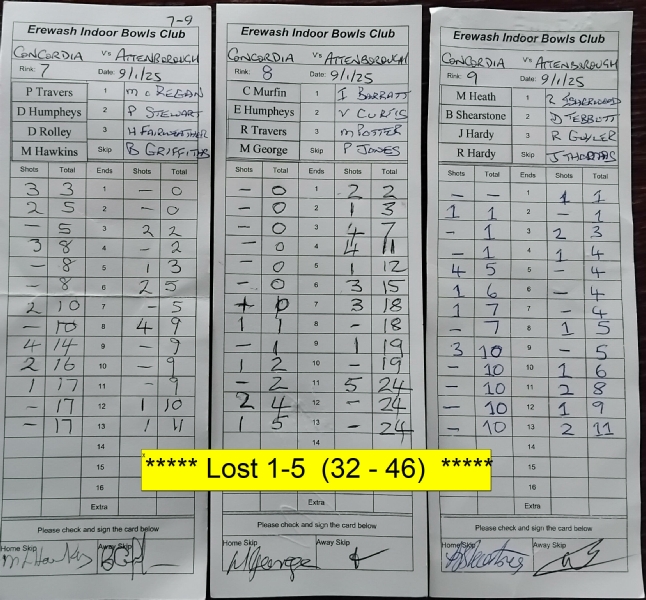 7-9
Erewash Indoor Bowls Club
CONCORDIA Vs ATTENBOROUGH
Rink: 7 Date: 9/1/25
P Travers 1 M C REGAN
D Humpheys 2 P STEWART
D Rolley 3 H FAIRWEATHER
M Hawkins Skip B GRIFFITHS
Shots Total Ends Shots Total
3 3 1 - 0
2 5 2 - 0
- 5 3 2 2
3 8 4 - 2
- 8 5 1 3
- 8 6 2 5
2 10 7 - 5
- 10 8 4 9
4 14 9 - 9
2 16 10 - 9
1 17 11 - 9
- 17 12 1 10
- 17 13 1 11
14
15
16
Extra
Please check and sign the card below
Home Skip Away Skip
Erewash Indoor Bowls Club
CONCORDIA Vs ATTENBOROUGH
Rink: 8 Date: 9/1/25
C Murfin 1 I BARRATT
E Humpheys 2 V CURTIS
R Travers 3 M POTTER
M George Skip P JONES
Shots Total Ends Shots Total
- 0 1 2 2
- 0 2 1 3
- 0 3 4 7
- 0 4 4 11
- 0 5 1 12
- 0 6 3 15
0 7 3 18
1 1 8 - 18
- 1 9 1 19
1 2 10 - 19
- 2 11 5 24
2 4 12 - 24
1 5 13 - 24
14
Extra
Please check and sign the card below
Home Skip Away Skip
M George
Erewash Indoor Bowls Club
CONCORDIA Vs ATTENBOROUGH
Rink: 9 Date: 9/1/25
M Heath 1 R
B Shearstone 2 D TEBBUTT
J Hardy 3 R GUYLER
R Hardy Skip J THOMAS
Shots Total Ends Shots Total
- - 1 1 1
1 1 2 - 1
- 1 3 2 3
- 1 4 1 4
4 5 5 - 4
1 6 6 - 4
1 7 7 - 4
- 7 8 1 5
3 10 9 - 5
- 10 10 1 6
- 10 11 2 8
- 10 12 1 9
- 10 13 2 11
14
15
16
Extra
Please check and sign the card below
Home Skip Away Skip
***** Lost 1-5 (32 - 46) *****